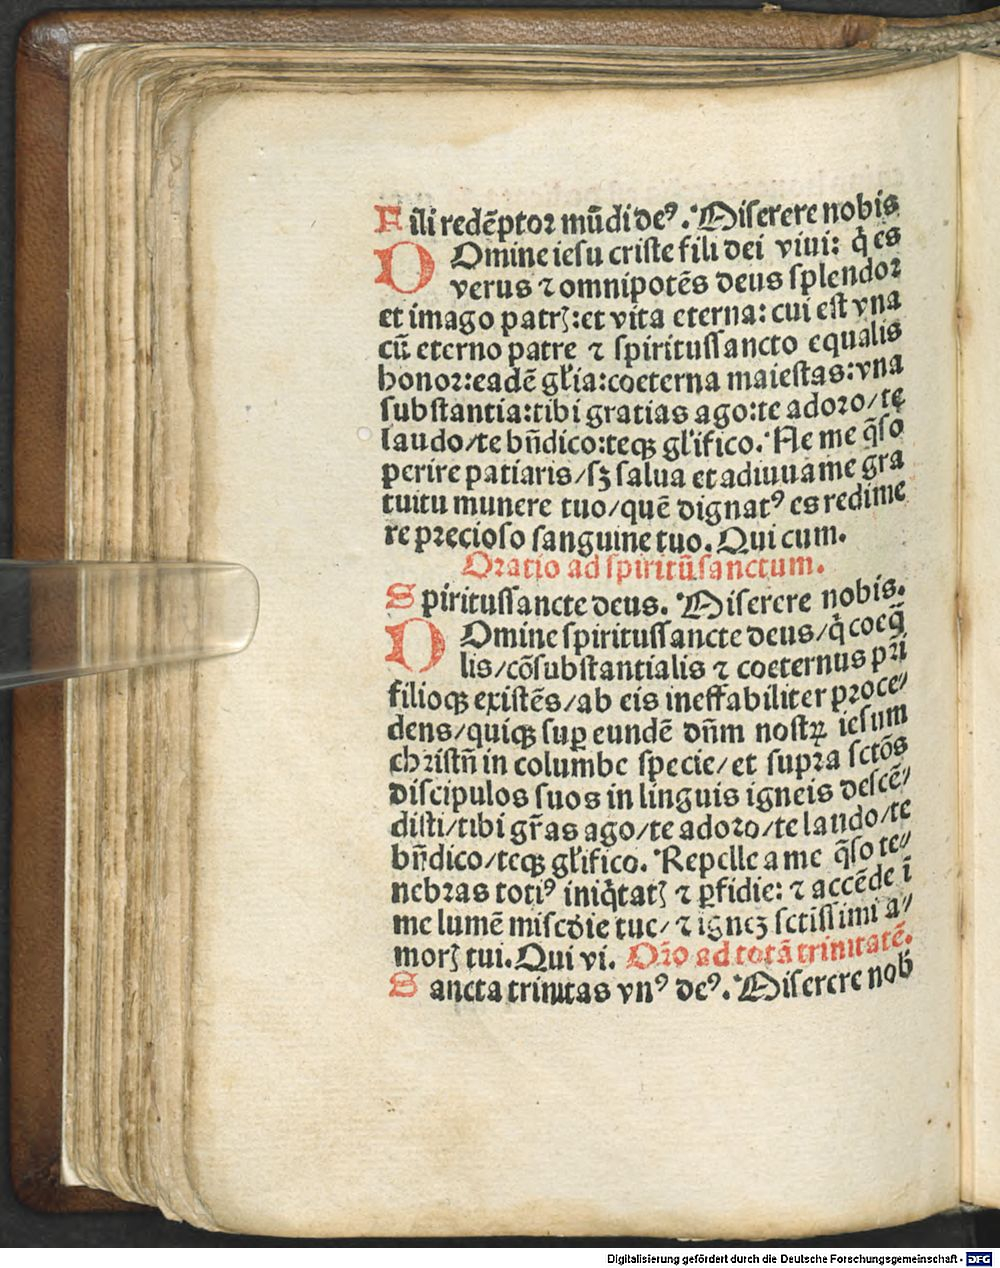 Fili redēptoꝛ mūdi deꝰ. Miserere nobis
DOmine iesu criste fili dei viui: q̇ es
verus ⁊ omnipotēs deus splendoꝛ
et imago patrꝭ: et vita eterna: cui est vna
cū eterno patre ⁊ spiritussancto equalis
honoꝛ: eadē gl'ia: coeterna maiestas: vna
substantia: tibi gratias ago: te adoꝛo/ te
laudo/ te bn̄dico: teqꝫ gl'ifico. Ne me q̄so
perire patiaris/ sꝫ salua et adiuua me gra
tuitu munere tuo/ quē dignatꝰ es redime
re pꝛecioso sanguine tuo. Qui cum.
Oratio ad spiritūsanctum.
Spiritussancte deus. Miserere nobis.
DOmine spiritussancte deus/ q̇ coeq̄
lis/ cōsubstantialis ⁊ coeternus pr̄i
filioqꝫ existēs/ ab eis ineffabiliter pꝛoce⸗
dens/ quiqꝫ suꝑ eundē dn̄m nostꝝ iesum
chꝛistn̄ in columbe specie/ et supꝛa sctōs
discipulos suos in linguis igneis descē⸗
disti/ tibi gr̄as ago/ te adoꝛo/ te laudo/ te
bn̄dico/ teqꝫ gl'ifico. Repelle a me q̄so te⸗
nebꝛas totiꝰ iniq̇tatꝭ ⁊ ꝑfidie: ⁊ accēde ī
me lumē miscd̄ie tue/ ⁊ igneꝫ sctissimi a⸗
morꝭ tui. Qui vi. Oꝛ̄o ad totā trinitatē.
Sancta trinitas vnꝰ deꝰ. Miserere nob̄
Digitalisierung gefördert durch die Deutsche Forschungsgemeinschaft - DFG